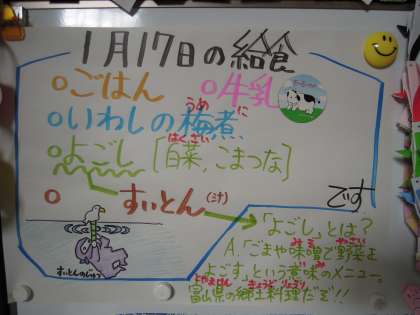 1月17日の給食
ごはん
牛乳
いわしの梅煮
うめ に
よごし [白菜、こまつな]
はくさい
すいとん(汁)
です
「よごし」とは?
A.「ごまや味噌で野菜を
みそ やさい
よごす」という意味のメニュー。
富山県の郷土料理だぞ!!
とやまけん きょうど りょうり
すいとんのじゅつ